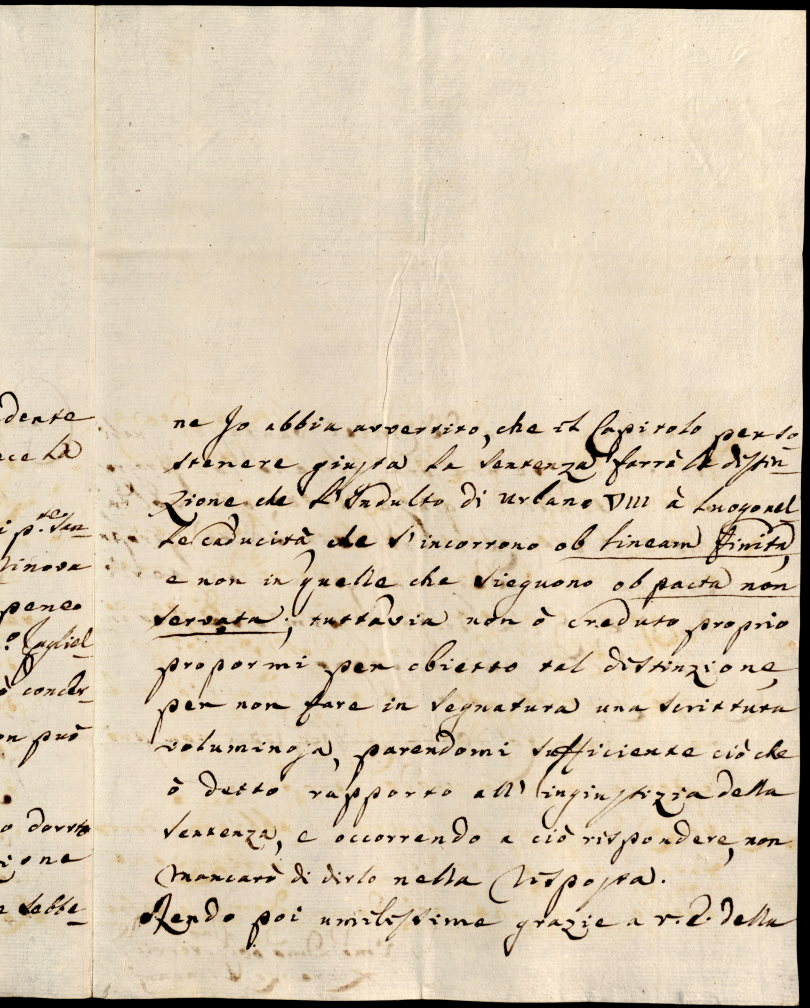 dente
ece la
i p.te Sen-
Rinova
pene
o concer-
on può
o dovrto
ione
e sebbe-
ne Jo abbia avvertito, che il Capitolo per so
stenere giusta la Sentenza farrà la distin-
zione, che l'Indulto di Urbano VIII à luogo nel
le caducità, che s'incorrono ob lineam finita,
e non in quelle che sieguono ob pacta non
servata; tuttavia non ò creduto proprio
propormi per obietto tal distinzione,
per non fare in Segnatura una scrittura
voluminosa, parendomi sufficiente ciò che
ò detto rapporto all' ingiustizia della
Sentenza, e occorrendo a ciò rispondere, non
mancarò di dirlo nella Risposta.
Rendo poi umilissime grazie a v. P. della